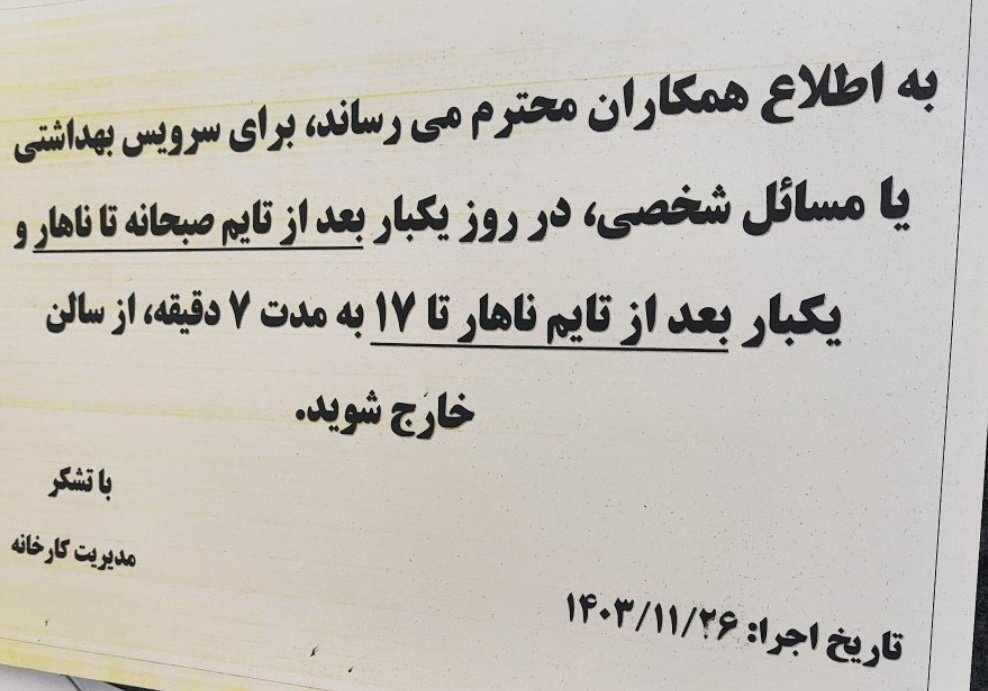 به اطلاع همکاران محترم می رساند، برای سرویس بهداشتی
یا مسائل شخصی، در روز یکبار بعد از تایم صبحانه تا ناهار و
یکبار بعد از تایم ناهار تا ۱۷ به مدت ۷ دقیقه، از سالن
خارج شوید.
با تشکر
مدیریت کارخانه
تاریخ اجرا: ۱۴۰۳/۱۱/۲۶